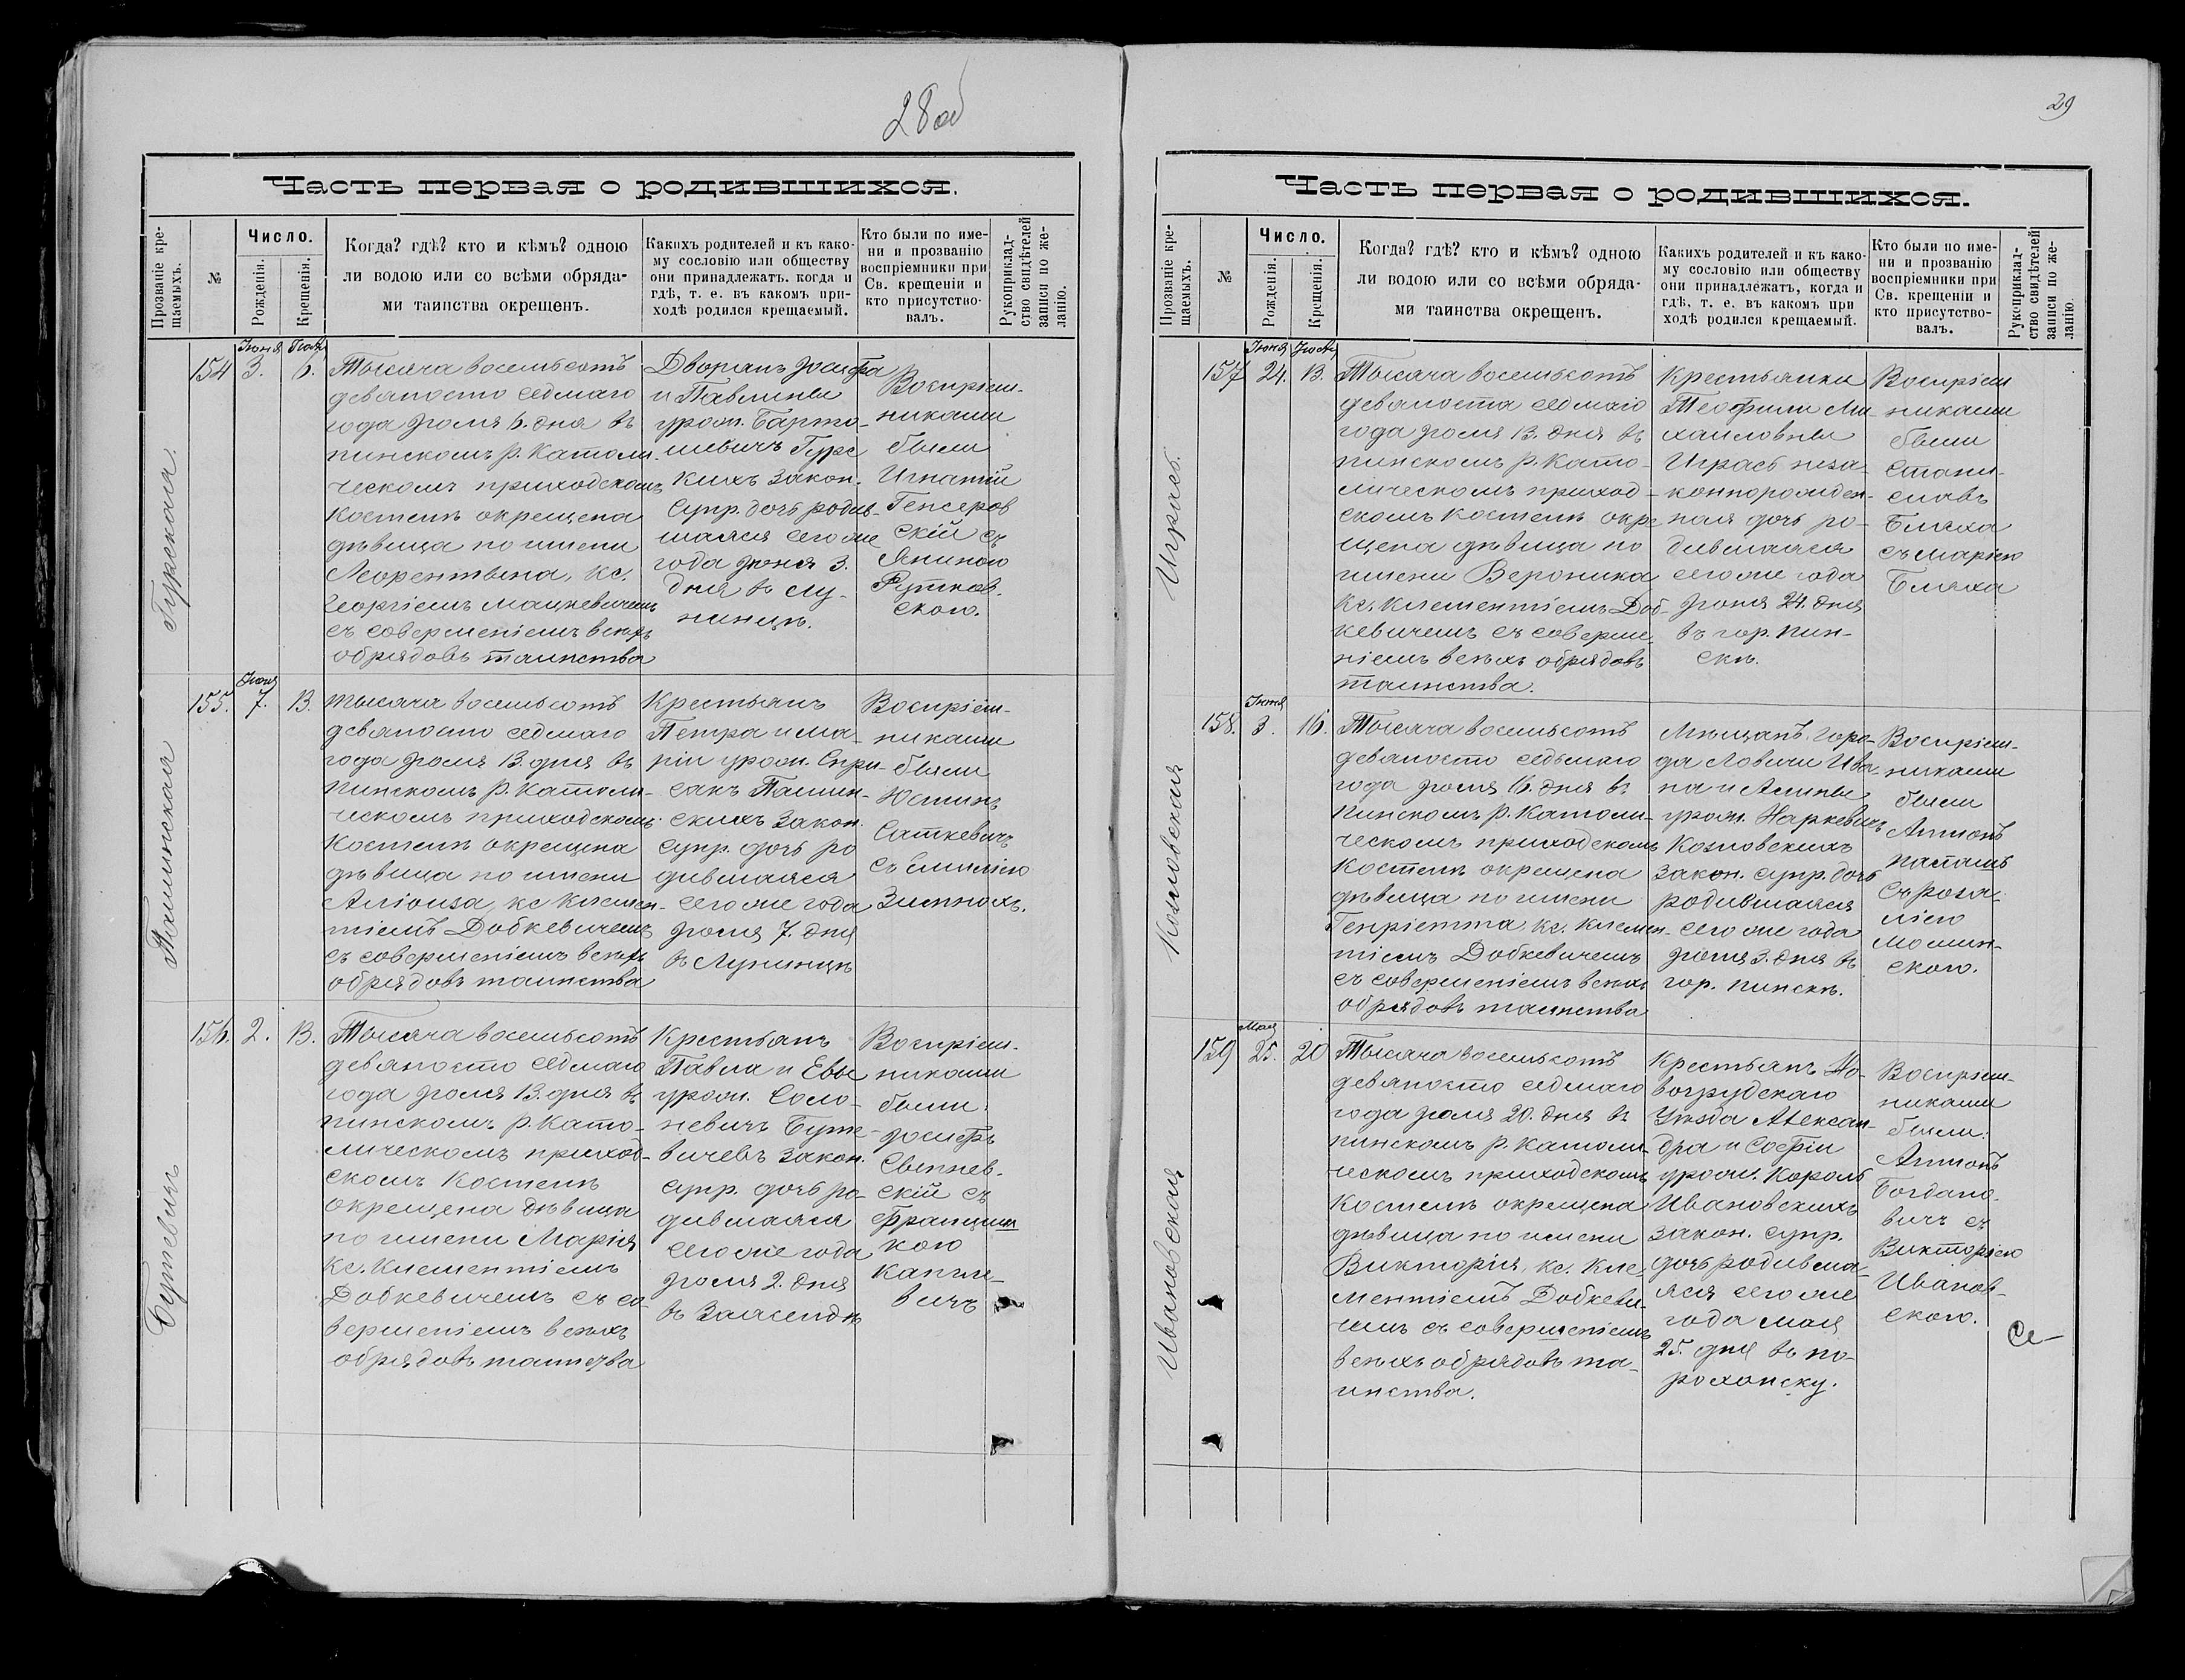 28 об
Часть первая о родившихся.
Прозваніе крещаемыхъ.
№
Число.
Рожденія.
Крещенія.
Когда? гдѣ? кто и кѣмъ? одною
ли водою или со всѣми обряда-
ми таинства окрещенъ.
Какихъ родителей и къ како-
му сословію или обществу
они принадлежатъ. когда и
гдѣ, т. е. въ какомъ при-
ходѣ родился крещаемый.
Кто были по име-
ни и прозванію
воспріемники при
Св. крещеніи и
кто присутство-
валъ.
Рукоприклад-
ство свидѣтелей
записи по же-
ланію.
Гурская.
154
Іюня
3.
Іюля
6.
Тысяча восемьсотъ
девяносто седмаго
года Іюля 6. дня въ
пинскомъ р. Католи-
ческомъ приходскомъ
костелѣ окрещена
дѣвица по имени
Леорентына, кс.
Георгіемъ Мацкевичемъ
съ совершеніемъ всѣхъ
обрядовъ таинства
Дворянъ Іосифа
и Павлины
урож. Барто-
шевичъ Гурс
кихъ закон.
супр. дочь родив-
шаяся сего же
года Іюня 3.
дня въ Лу-
нинцѣ.
Воспріем-
никами
были
Игнатій
Генсеров
скій съ
Яниною
Рутков-
скою.
Пашинская
155.
Іюля
7.
13.
тысяча восемьсотъ
девяносто седмаго
года Іюля 13. дня въ
пинскомъ р. Католи-
ческомъ приходскомъ
костелѣ окрещена
дѣвица по имени
Алиоиза, кс Клемен-
тіемъ Добкевичемъ
съ совершеніемъ всѣхъ
обрядовъ таинства
Крестьянъ
Петра и Ма-
ріи урож. Спри-
сакъ Пашин-
скихъ закон.
супр. дочь ро
дившаяся
сего же года
Іюля 7. дня
въ Лунинцѣ
Воспріем-
никами
были
Юстинъ
Саткевичъ
съ Емиліею
Зимнохъ.
Бужевичъ
156.
2.
13.
Тысяча восемьсотъ
девяносто седмаго
года Іюля 13. дня въ
пинскомъ р. Като-
лическомъ приход-
скомъ костелѣ
окрещена дѣвица
по имени Марія
кс. Клементіемъ
Добкевичемъ съ со-
вершеніемъ всѣхъ
обрядовъ таинства
Крестьянъ
Павла и Евы
урож. Соло-
невичъ Буже-
вичевъ закон.
супр. дочь ро-
дившаяся
сего же года
Іюля 2. дня
въ Заясендѣ
Воспріем-
никами
были:
Іосифъ
скій съ
Францишкою
вичъ
29
Часть первая о родившихся.
Прозваніе крещаемыхъ.
№
Число.
Рожденія.
Крещенія.
Когда? гдѣ? кто и кѣмъ? одною
ли водою или со всѣми обряда-
ми таинства окрещенъ.
Какихъ родителей и къ како-
му сословію или обществу
они принадлежатъ, когда и
гдѣ, т. е. въ какомъ при
ходѣ родился крещаемый.
Кто были по име-
ни и прозванію
воспріемники при
Св. крещеніи и
кто присутство-
валъ.
Рукоприклад-
ство свидѣтелей
записи по же-
ланію.
Играсъ.
157
Іюня
24.
Іюля
13.
Тысяча восемьсотъ
девяноста седмаго
года Іюля 13. дня въ
пинскомъ р. Като-
лическомъ приход-
скомъ костелѣ окре
щена дѣвица по
имени Вероника
кс. Клементіемъ Доб-
кевичемъ съ соверше-
ніемъ всѣхъ обрядовъ
таинства.
Крестьянки
Теофили Ми-
хайловны
Играсъ неза-
коннорожден-
ная дочь ро-
дившаяся
сего же года
Іюня 24. дня
въ гор. Пин-
скѣ.
Воспріем
никами
были
Стани-
славъ
Бляха
съ Маріею
Бляха
Козловская
158.
Іюля
3.
16.
Тысяча восемьсотъ
девяносто седьмаго
года Іюля 16. дня въ
пинскомъ р. Католи-
ческомъ приходскомъ
костелѣ окрещена
дѣвица по имени
Генріетта, кс. Клемен-
тіемъ Добкевичемъ
съ совершеніемъ всѣхъ
обрядовъ таинства
Мѣщанъ горо-
да Ловичи Ива-
на и Алины
урож. Наркевичъ
Козловскихъ
закон. супр. дочь
родившаяся
сего же года
Іюля 3. дня въ
гор. Пинскѣ.
Воспріем-
никами
были
Антонъ
съ Роза-
ліею
скою.
Ивановская
159
Мая
25.
20
Тысяча восемьсотъ
девяносто седмаго
года Іюля 20. дня въ
пинскомъ р. Католи-
ческомъ приходскомъ
костелѣ окрещена
дѣвица по имени
Викторія, кс. Кле-
ментіемъ Добкеви-
чемъ съ совершеніемъ
всѣхъ обрядовъ та-
инства.
Крестьянъ Но-
вогрудскаго
Уѣзда Алексан-
дра и Софіи
урож. Король
Ивановскихъ
закон. супр.
дочь родивша-
яся сего же
года мая
25. дня въ По-
рохонску.
Воспріем-
никами
были:
Антонъ
Богдано-
вичъ съ
Викторіею
Иванов-
скою.
Се-